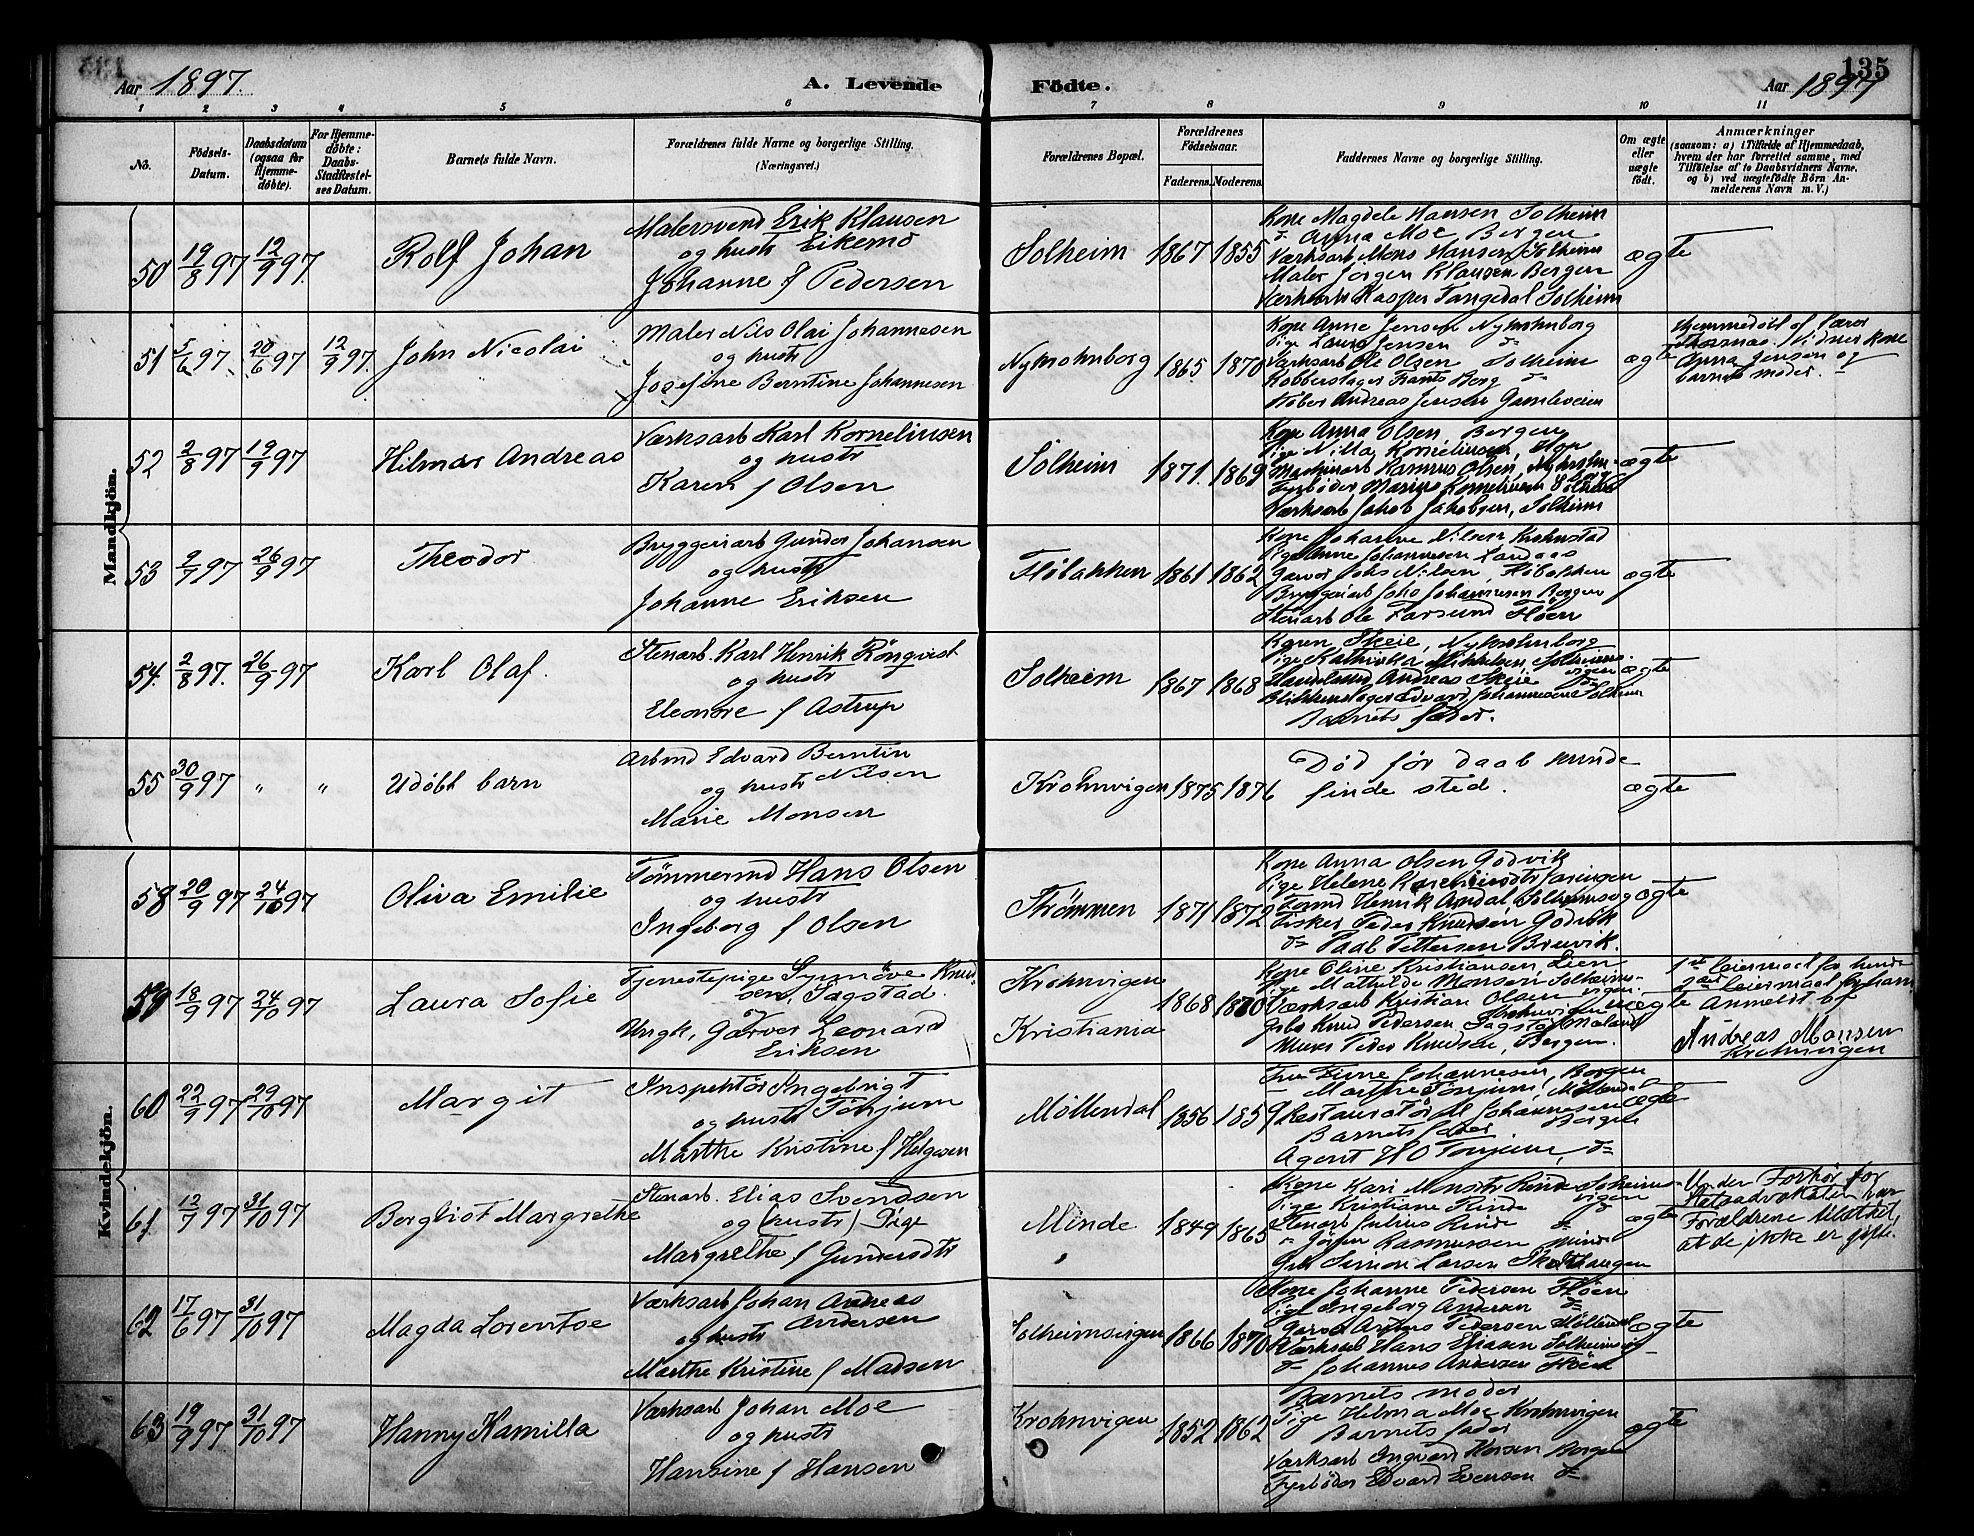 Aar 1897.
A. Levende
Födte.
135
Aar 1897
1 2 3 4 5 6 7 8 9 10 11
No.
Födsels-
Datum.
Daabsdatum
(ogsaa for
Hjemme-
døbte).
For Hjemme-
døbte:
Daabs-
Stadfæstel-
ses Datum.
Barnets fulde Navn.
Forældrenes fulde Navne og borgerlige Stilling.
(Næringsvei.)
Forældrenes Bopæl.
Forældrenes
Födselsaar.
Faderens. Moderens.
Faddernes Navne og borgerlige Stilling.
Om ægte
eller
uægte
født.
Anmærkninger
(saasom: a) i Tilfælde af Hjemmedaab,
hvem der har forrettet samme, med
Tilføielse af to Daabsvidners Navne,
og b) ved uægtefödte Börn An-
melderens Navn m. V.)
Mandkjön.
50 19/8 97 12/9 97.
Rolf Johan
Malersvend Erik Klausen
og hustr Eikemo
Johanne f Pedersen
Solheim 1867 1855
Kone Magdele Hansen Solheim
d= Anna Moe Bergen
Værksarb Mons Hansen Solheim
Maler Jörgen Klausen Bergen
Værksarb Kasper Tangedal Solheim
ægte
51 5/6 97. 20/6 97 12/9 97.
John Nicolai
Maler Nils Olai Johannesen
og hustr
Josefine Berntine Johannesen
Nykrohnborg 1865 1870
Kone Anne Jensen Nykrohnborg
Pige Laura Jensen d=
Værksarb Ole Olsen Solheim
Kobberslager Frants Berg d=
Kober Andreas Jensen
ægte
Hjemmedøbt af Lærer
Vidner kone
Anna Jensen og
barnets moder.
52 2/8 97 19/9 97
Hilmar Andreas
Værksarb Karl Korneliusen
og hustr
Karen f Olsen
Solheim 1871. 1869
Kone Anna Olsen, Bergen
Pige Nilla Korneliusen,
Maskinarb Rasmus Olsen,
Fyrbøder Marius Korneliusen Solheim
Værksarb Jakob Jakobsen, Solheim
ægte
53 9/7 97 26/9 97
Theodor
Bryggeriarb Gunder Johansen
og hustr
Johanne Eriksen
Fløbakken 1861 1862
Kone Johanne Nilsen Krohnstad
Pige Anne Johannesen Landaas
Garver Johs Nilsen, Fløbakken
Bryggeriarb Johs Johannesen Bergen
Stenarb Ole Farsund Fløen
ægte
54. 2/8 97. 26/9 97
Karl Olaf.
Stenarb. Karl Henrik Rönqvist
og hustr
Eleonore f Astrup
Solheim 1867 1868
Karen Skeie, Nykrohnborg
Pige Kathinka Mikkelsen, Solheims-
vigen
Andreas Skeie d=
Blikkenslager Edvard Johannesen Solheim
Barnets fader.
ægte
55 30/9 97 " "
Udöbt barn
Arbmd Edvard Berntin
og hustr Nilsen
Marie Monsen
Krohnvigen 1875 1876
Død før daab kunde
finde sted.
ægte
Kvindekjön.
58 20/9 97 24/10 97
Oliva Emilie
Tömmermd Hans Olsen
og hustr
Ingeborg f Olsen
Strømmen 1871 1872
Kone Anna Olsen Godvik
Pige Helene
Henrik Arndal
Fisker Peder Knudsen Godvik
d= Paul Pettersen Breivik.
ægte
59 18/9 97 24/10 97
Laura Sofie
Tjenestepige Synnöve Knud-
sen, Sagstad.
og
Ungk, Garver Leonard
Eriksen
Krohnvigen
Kristiania
1868 1870
Kone Oline Kristiansen, Lien
Pige Mathilde Monsen Solheims-
vigen
Værksarb Kristian Olsen
Krohnvigen
Gbr Knud Pedersen Sagstad
Murer Peder Knudsen, Bergen.
uægte
1ste leiermaal for hende
2det leiermaal for ham.
Anmeldt af
Andreas Monsen
Krohnvigen
60 22/9 97 29/10 97
Margit
Inspektör Ingebrigt
og hustr Tönjum
Marthe Kristine f Helgesen
Møllendal 1856 1859
Fru Johannesen, Bergen
Marthe Tönjum, Möllendal
Restauratör M Johannesen
Bergen
Barnets fader
Agent H O Tönjum, d=
ægte
61 12/7 97 31/10 97
Borghiot Margrethe
Stenarb. Elias Svendsen
og (hustr) Pige
Margrethe f Gundersdtr
Minde 1849 1865
Kone Kari Minde Solheims-
vigen
Pige Kristiane Rinde d=
Stenarb Julius Rinde d=
d= Jörgen Rasmussen Minde
Gbr Simon Larsen Skothaugen
ægte
Under Forhör for
Statsadvokaten har
Forældrene tilstaaet
at de ikke er gifte.
62 17/6 97 31/10 97
Magda Lorentse
Værksarb Johan Andreas
og hustr Andersen
Marthe Kristine f Madsen
Solheimsvigen 1866 1870
Kone Johanne Pedersen Fløen
Pige Ingeborg Andersen d=
Garver Pedersen Möllendal
Værksarb Hans Eliasen Solheimsvig
d= Johannes Andersen Fløen
ægte
63 19/9 97 31/10 97
Hanny Kamilla
Værksarb Johan Moe
og hustr
Hansine f Hansen
Krohnvigen 1852 1862
Barnets moder
Pige Helma Moe Krohnvigen
Barnets fader
Værksarb Ingvard Hansen Bergen
Fyrböder Edvard Evensen d=
ægte